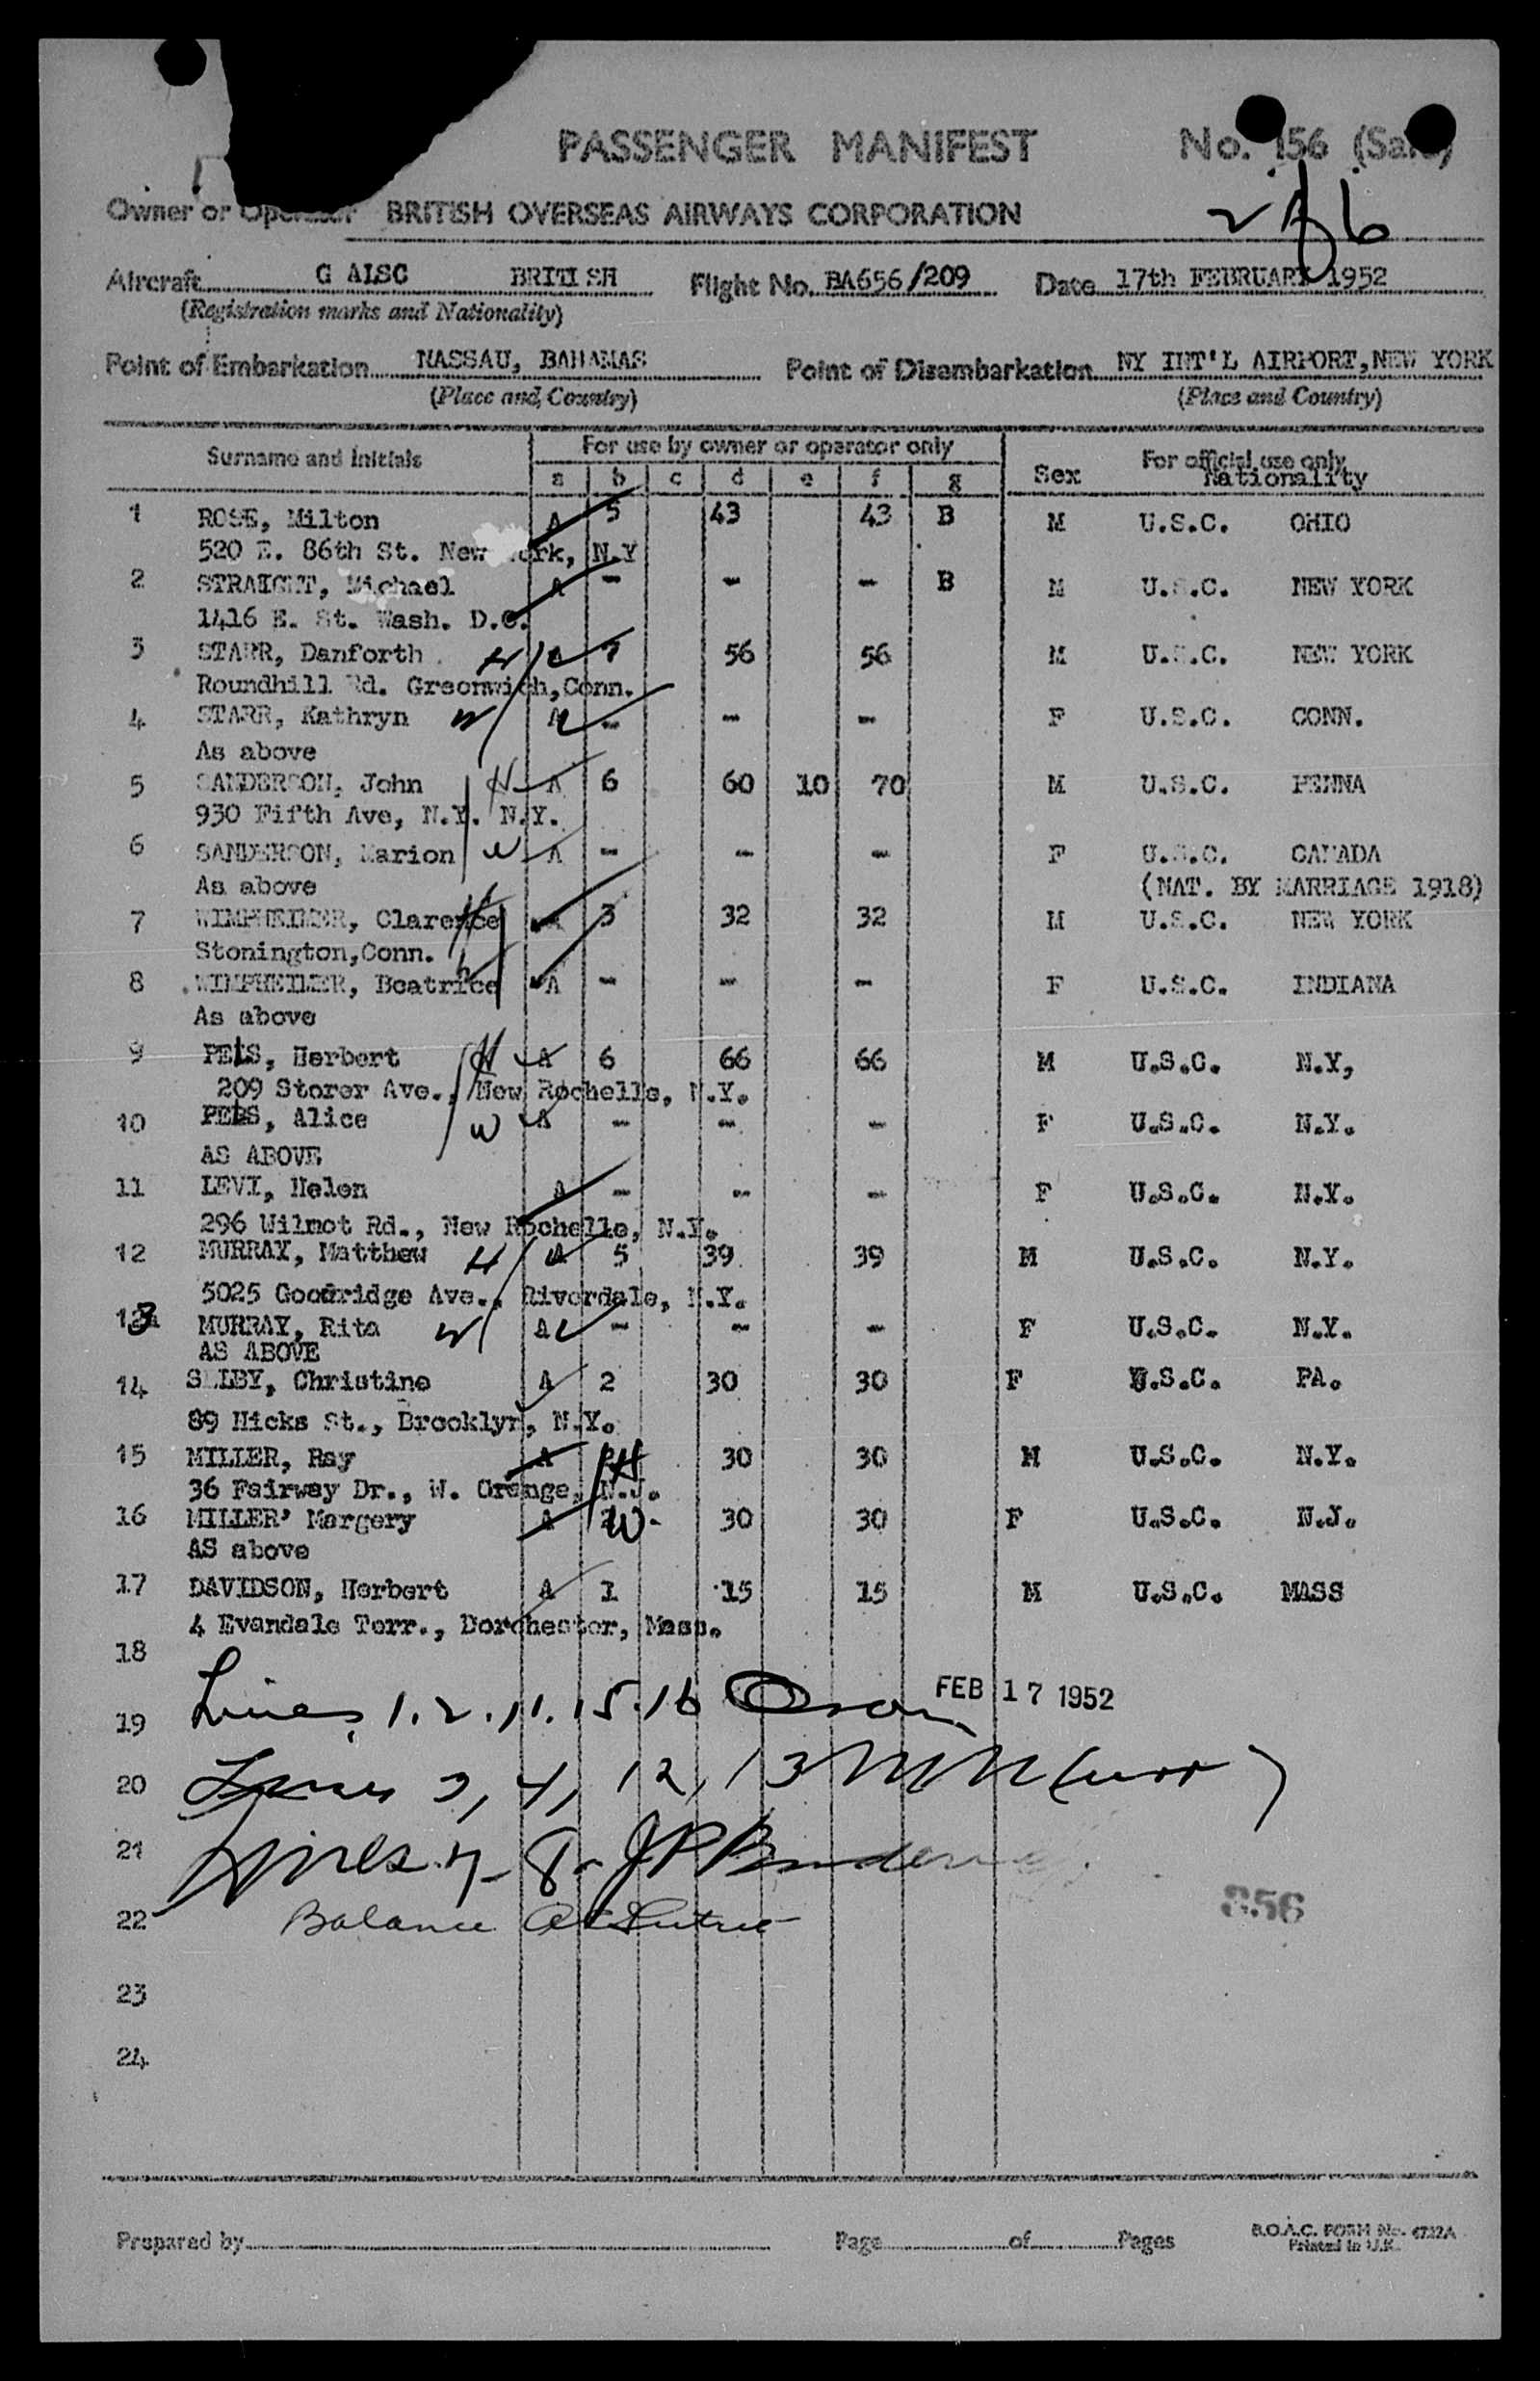 PASSENGER MANIFEST No. 156
Owner or Operator BRITISH OVERSEAS AIRWAYS CORPORATION
Aircraft G ALSC BRITISH Flight No. BA656/209 Date 17th FEBRUARY 1952
(Registration marks and Nationality)
Point of Embarkation NASSAU, BAHAMAS Point of Disembarkation NY INT'L AIRPORT, NEW YORK
(Place and Country) (Place and Country)
Surname and initials For use by owner or operator only Sex For official use only
a b c d e f g Nationality
1 ROSE, Milton A 5 43 43 B M U.S.C. OHIO
520 E. 86th St. New York, N.Y
2 STRAIGHT, Michael A - - - B M U.S.C. NEW YORK
1416 E. St. Wash. D.C.
3 STARR, Danforth H A 7 56 56 M U.S.C. NEW YORK
Roundhill Rd. Greenwich, Conn.
4 STARR, Kathryn W A - - - F U.S.C. CONN.
As above
5 SANDERSON, John H A 6 60 10 70 M U.S.C. PENNA
930 Fifth Ave, N.Y. N.Y.
6 SANDERSON, Marion W A - - - F U.S.C. CANADA
As above (NAT. BY MARRIAGE 1918)
7 WIMPHEIMER, Clarence H A 3 32 32 M U.S.C. NEW YORK
Stonington, Conn.
8 WIMPHEIMER, Beatrice A - - - F U.S.C. INDIANA
As above
9 PELS, Herbert H A 6 66 66 M U.S.C. N.Y,
209 Storer Ave., New Rochelle, N.Y.
10 PELS, Alice W A - - - F U.S.C. N.Y.
AS ABOVE
11 LEVI, Helen A - - - F U.S.C. N.Y.
296 Wilmot Rd., New Rochelle, N.Y.
12 MURRAY, Matthew H A 5 39 39 M U.S.C. N.Y.
5025 Goodridge Ave., Riverdale, N.Y.
13 MURRAY, Rita W A - - - F U.S.C. N.Y.
AS ABOVE
14 SELBY, Christine A 2 30 30 F U.S.C. PA.
89 Hicks St., Brooklyn, N.Y.
15 MILLER, Ray A H 30 30 M U.S.C. N.Y.
36 Fairway Dr., W. Orange, N.J.
16 MILLER' Margery A W 30 30 F U.S.C. N.J.
AS above
17 DAVIDSON, Herbert A 1 15 15 M U.S.C. MASS
4 Evandale Terr., Dorchester, Mass.
18
19 Lines 1.2.11.15.16 FEB 17 1952
20 Lines 3, 4, 12, 13
21 Lines 7-8-
22 Balance
356
23
24
Prepared by Page of Pages B.O.A.C. FORM No. 4732A
Printed in U.K.